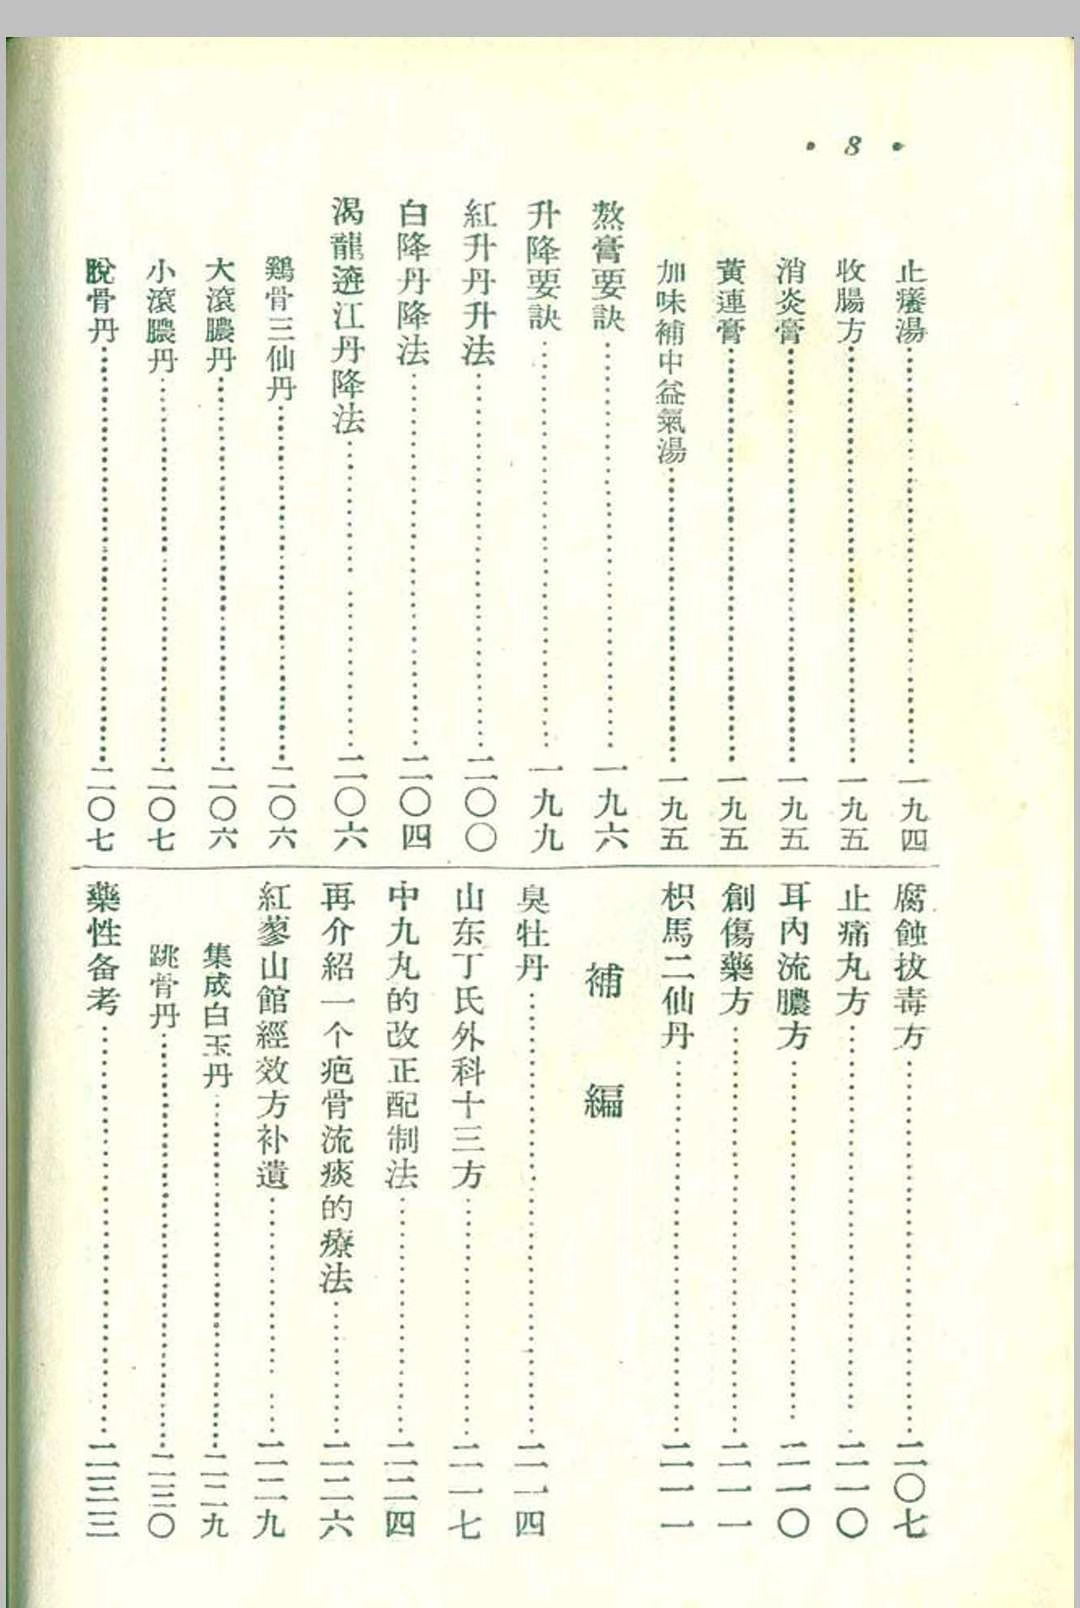 • 8 •
止癢湯……一九四
收腸方……一九五
消炎膏……一九五
黃連膏……一九五
加味補中益氣湯……一九五
熬膏要訣……一九六
升降要訣……一九九
紅升丹升法……二〇〇
白降丹降法……二〇四
渴龍遊江丹降法……二〇六
鷄骨三仙丹……二〇六
大滾膿丹……二〇六
小滾膿丹……二〇七
脫骨丹……二〇七
腐蝕拔毒方……二〇七
止痛丸方……二一〇
耳內流膿方……二一〇
創傷藥方……二一一
枳馬二仙丹……二一一
補編
臭牡丹……二一四
山东丁氏外科十三方……二一七
中九丸的改正配制法……二二四
再介紹一个疤骨流痰的療法……二二六
紅蓼山館經效方补遺……二二九
集成白玉丹……二二九
跳骨丹……二三〇
藥性备考……二三三